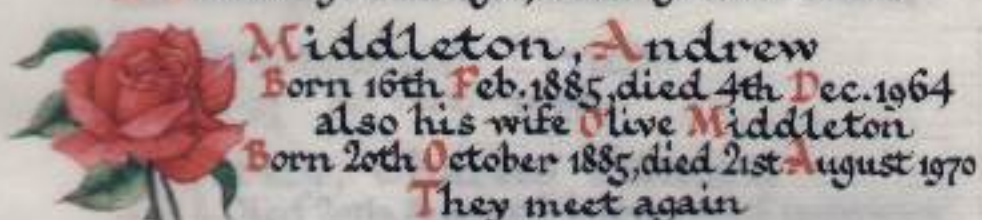 Middleton, Andrew
Born 16th Feb. 1885, died 4th Dec. 1964
also his wife Olive Middleton
Born 20th October 1885, died 21st August 1970
They meet again